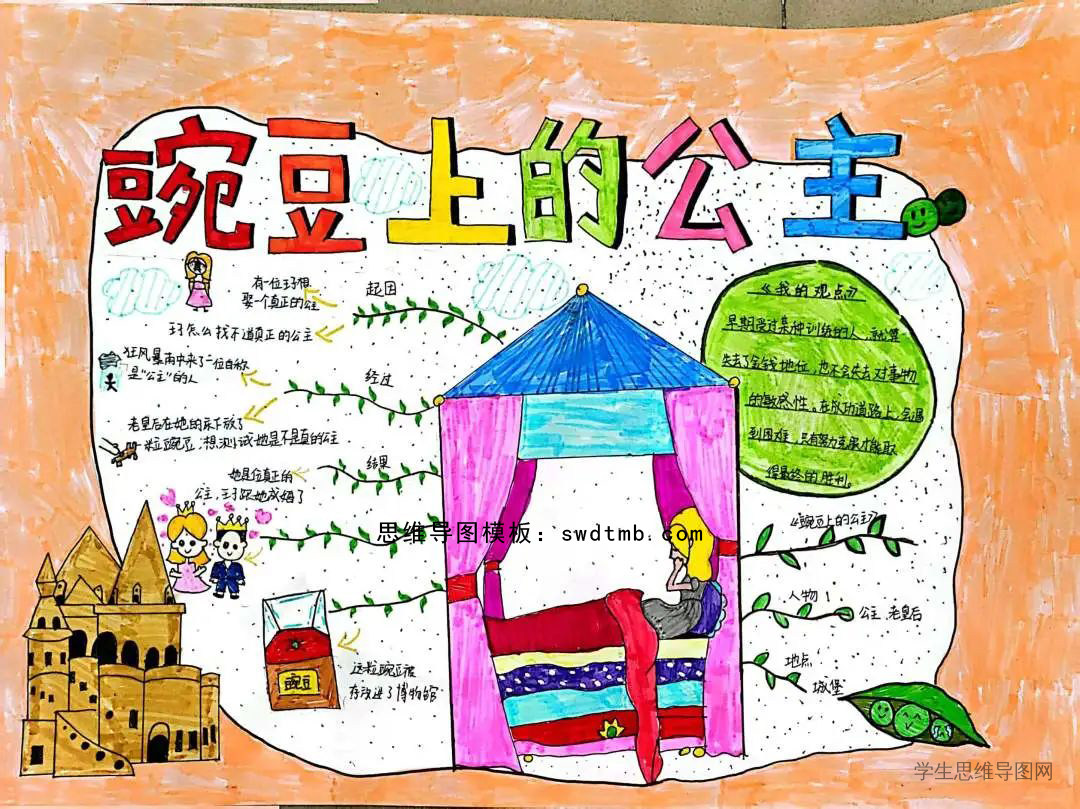 豌豆上的公主
有一位王子想
娶一个真正的公主
起因
王子怎么找不道真正的公主
狂风暴雨中来了一位自称
是“公主”的人
经过
老皇后在她的床下放了
一粒豌豆,想测试她是不是真的公主
结果
她是位真正的
公主,王子跟她成婚了
豌豆
这粒豌豆被
存放进了博物馆
《我的观点》
早期受过某种训练的人,就算
失去了金钱地位,也不会失去对事物
的敏感性。在成功道路上,会遇
到困难,只有努力克服才能取
得最终的胜利。
《豌豆上的公主》
人物!
公主、老皇后
地点
城堡
思维导图模板:swdtmb.com
学生思维导图网